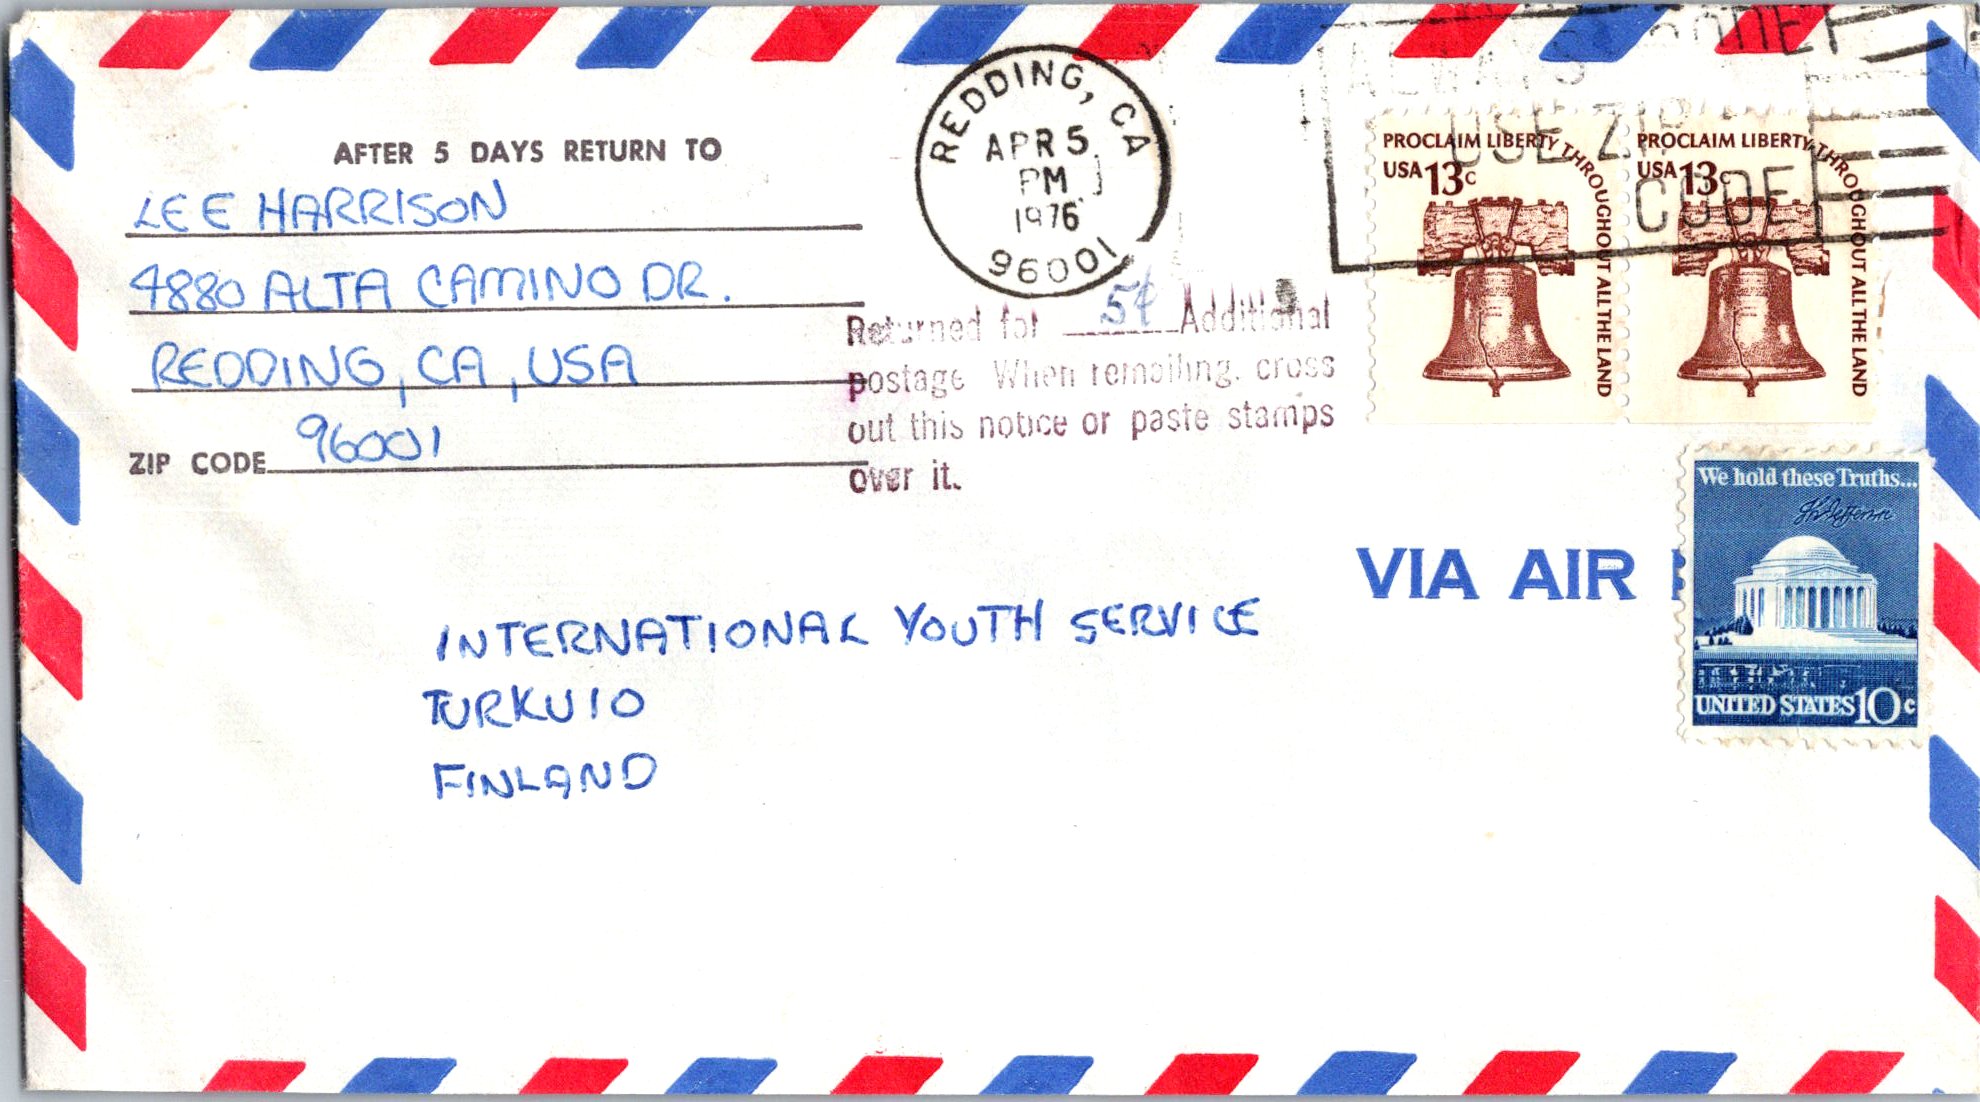 AFTER 5 DAYS RETURN TO
LEE HARRISON
4880 ALTA CAMINO DR.
REDDING, CA, USA
96001
ZIP CODE
REDDING, CA
APR 5
PM
1976
96001
ALWAYS
USE ZIP
CODE
Returned for 5¢ Additional
postage When remailing, cross
out this notice or paste stamps
over it.
PROCLAIM LIBERTY THROUGHOUT ALL THE LAND
USA 13c
PROCLAIM LIBERTY THROUGHOUT ALL THE LAND
USA 13c
We hold these Truths...
Th Jefferson
UNITED STATES 10c
VIA AIR
INTERNATIONAL YOUTH SERVICE
TURKU 10
FINLAND